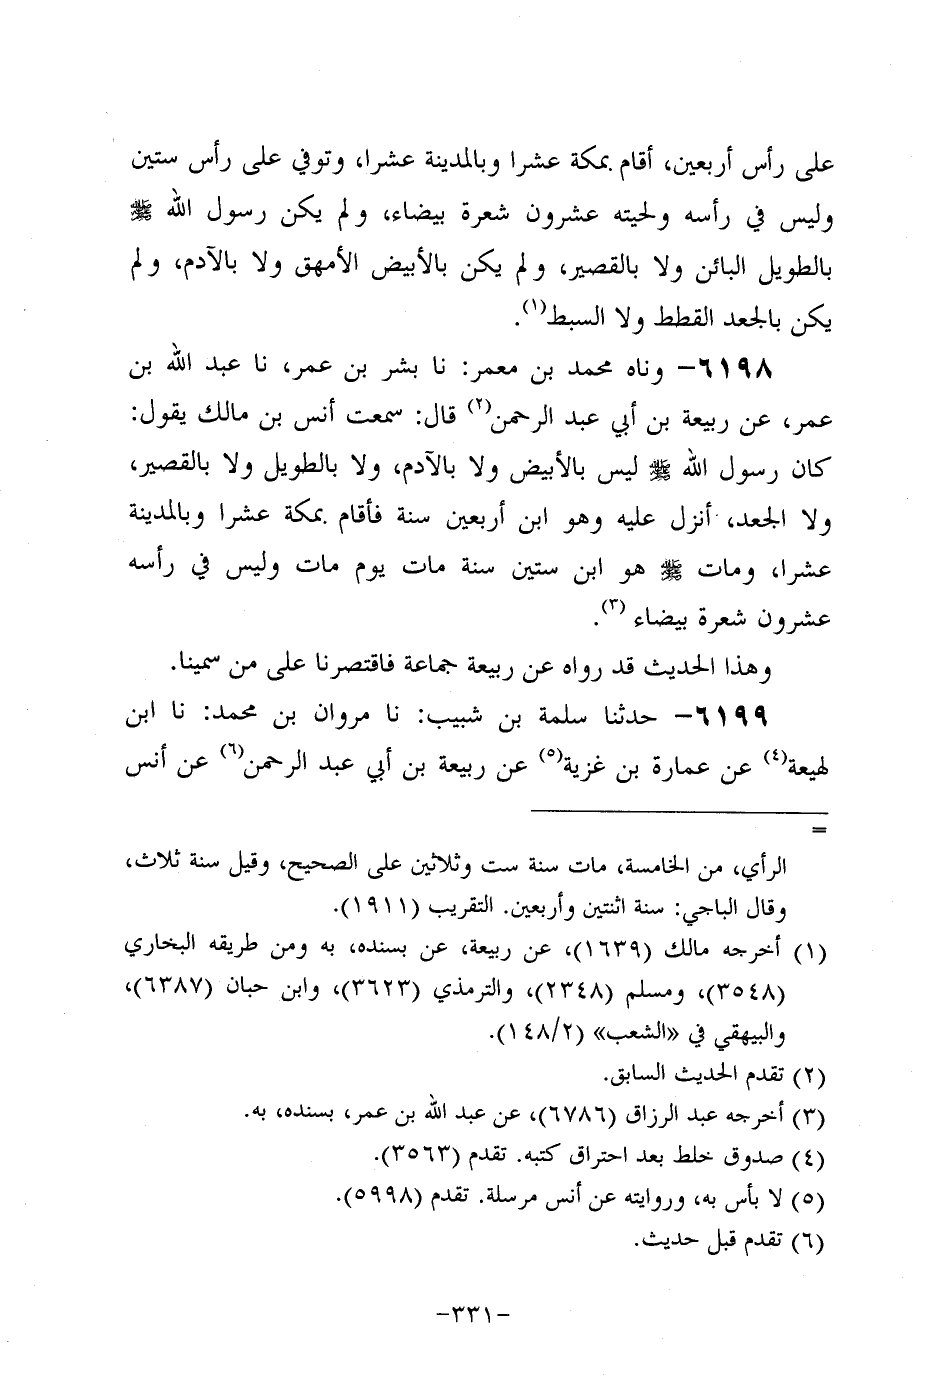 على رأس أربعين، أقام بمكة عشرا وبالمدينة عشرا، وتوفي على رأس ستين
وليس في رأسه ولحيته عشرون شعرة بيضاء، ولم يكن رسول الله ﷺ
بالطويل البائن ولا بالقصير، ولم يكن بالأبيض الأمهق ولا بالآدم، ولم
يكن بالجعد القطط ولا السبط(١).
٦١٩٨- وناه محمد بن معمر: نا بشر بن عمر، نا عبد الله بن
عمر، عن ربيعة بن أبي عبد الرحمن(٢) قال: سمعت أنس بن مالك يقول:
كان رسول الله ﷺ ليس بالأبيض ولا بالآدم، ولا بالطويل ولا بالقصير،
ولا الجعد، أنزل عليه وهو ابن أربعين سنة فأقام بمكة عشرا وبالمدينة
عشرا، ومات ﷺ هو ابن ستين سنة مات يوم مات وليس في رأسه
عشرون شعرة بيضاء (٣).
وهذا الحديث قد رواه عن ربيعة جماعة فاقتصرنا على من سمينا.
٦١٩٩- حدثنا سلمة بن شبيب: نا مروان بن محمد: نا ابن
لهيعة(٤) عن عمارة بن غزية(٥) عن ربيعة بن أبي عبد الرحمن(٦) عن أنس
=
الرأي، من الخامسة، مات سنة ست وثلاثين على الصحيح، وقيل سنة ثلاث،
وقال الباجي: سنة اثنتين وأربعين. التقريب (١٩١١).
(١) أخرجه مالك (١٦٣٩)، عن ربيعة، عن بسنده، به ومن طريقه البخاري
(٣٥٤٨)، ومسلم (٢٣٤٨)، والترمذي (٣٦٢٣)، وابن حبان (٦٣٨٧)،
والبيهقي في «الشعب» (١٤٨/٢).
(٢) تقدم الحديث السابق.
(٣) أخرجه عبد الرزاق (٦٧٨٦)، عن عبد الله بن عمر، بسنده، به.
(٤) صدوق خلط بعد احتراق كتبه. تقدم (٣٥٦٣).
(٥) لا بأس به، وروايته عن أنس مرسلة. تقدم (٥٩٩٨).
(٦) تقدم قبل حديث.
-٣٣١-